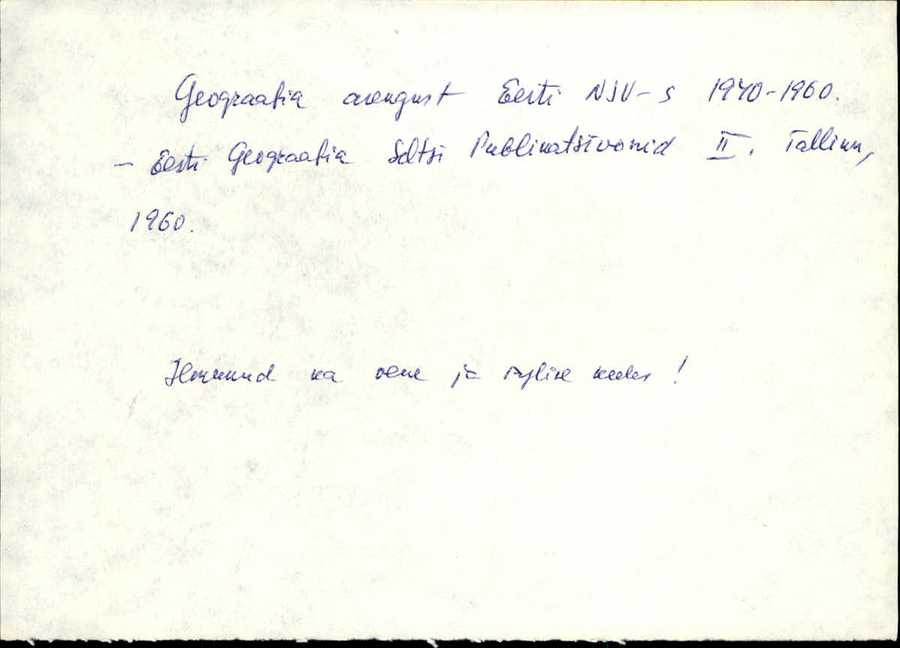 Geograafia arengust Eesti NSV-s 1940-1960.
- Eesti Geograafia Seltsi Publikatsioonid II. Tallinn,
1960.
Ilmunud ka vene ja inglise keeles!